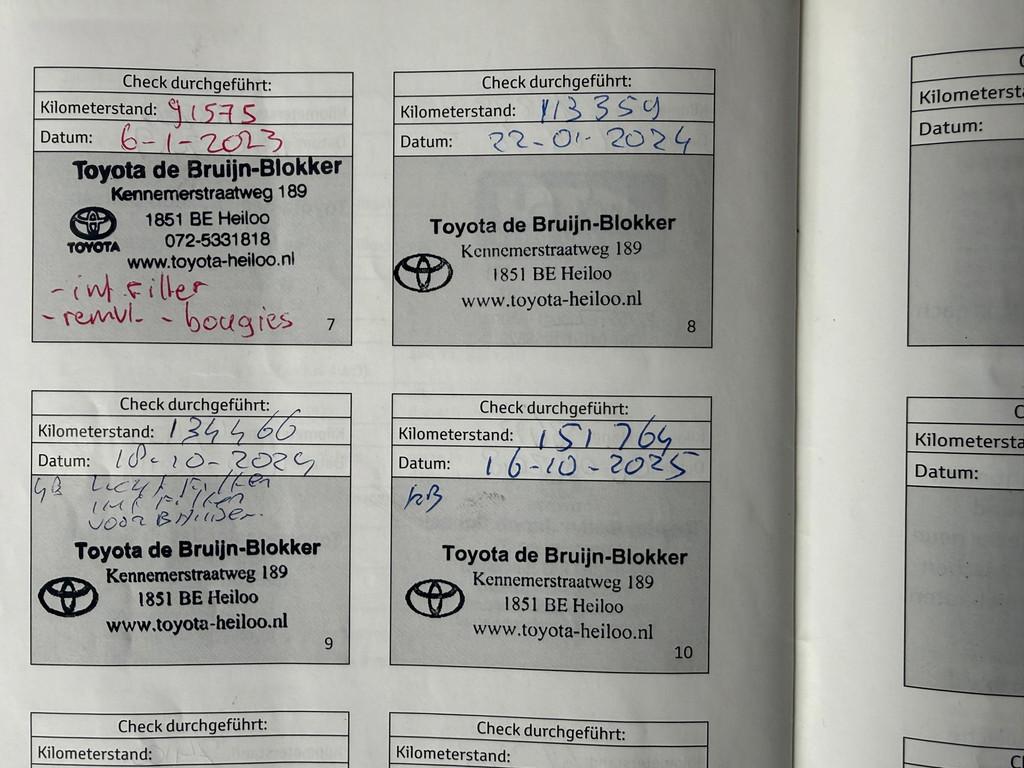 Check durchgeführt:
Kilometerstand: 91575
Datum: 6-1-2023
Toyota de Bruijn-Blokker
Kennemerstraatweg 189
1851 BE Heiloo
072-5331818
TOYOTA
www.toyota-heiloo.nl
- int filter
- remvl. - bougies
7
Check durchgeführt:
Kilometerstand: 113359
Datum: 22-01-2024
Toyota de Bruijn-Blokker
Kennemerstraatweg 189
1851 BE Heiloo
www.toyota-heiloo.nl
8
Check durchgeführt:
Kilometerstand: 134466
Datum: 18-10-2024
Lucht Filter
int Filter
Toyota de Bruijn-Blokker
Kennemerstraatweg 189
1851 BE Heiloo
www.toyota-heiloo.nl
9
Check durchgeführt:
Kilometerstand: 151764
Datum: 16-10-2025
Toyota de Bruijn-Blokker
Kennemerstraatweg 189
1851 BE Heiloo
www.toyota-heiloo.nl
10
Check durchgeführt:
Kilometerstand:
Check durchgeführt:
Kilometerstand:
C
Kilometersta
Datum:
C
Kilometersta
Datum:
C